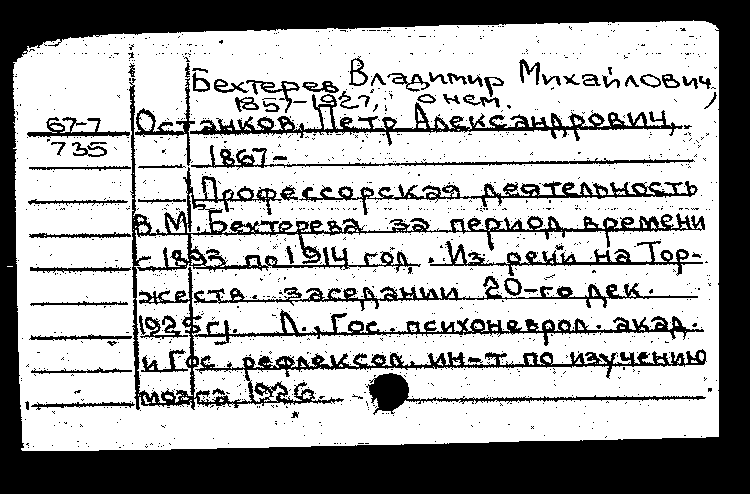 Бехтерев, Владимир Михайлович,
1857-1927, о нем.
67-7 Останков, Петр Александрович,
735 1867-
[Профессорская деятельность
В.М. Бехтерева за период времени
с 1893 по 1914 год. Из речи на Тор-
жеств. заседании 20-го дек.
1925 г]. Л., Гос. психоневрол. акад.
и Гос. рефлексол. ин-т по изучению
мозга, 1926.